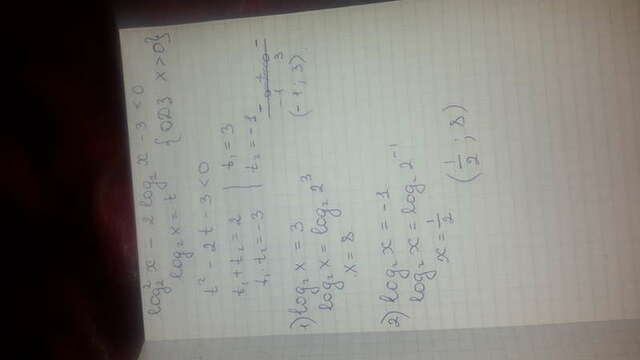 log₂² x − 2 log₂ x − 3 < 0
log₂ x = t { ОДЗ x > 0 }
t² − 2t − 3 < 0
t₁ + t₂ = 2 | t₁ = 3
t₁ · t₂ = −3 | t₂ = −1
−1 3
(−1; 3)
1) log₂ x = 3
log₂ x = log₂ 2³
x = 8
2) log₂ x = −1
log₂ x = log₂ 2⁻¹
x = 1/2
(1/2 ; 8)